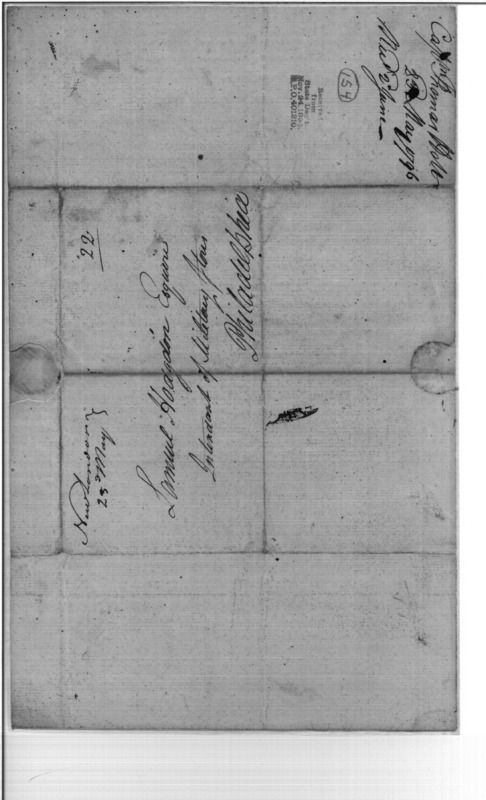 Capt Thomas
23 May 1796
Recd 2 June
154
Received
from
State Dept.
22
Samuel Hodgdon Esquire
Intendent of Military Stores
Philadelphia
New London
23